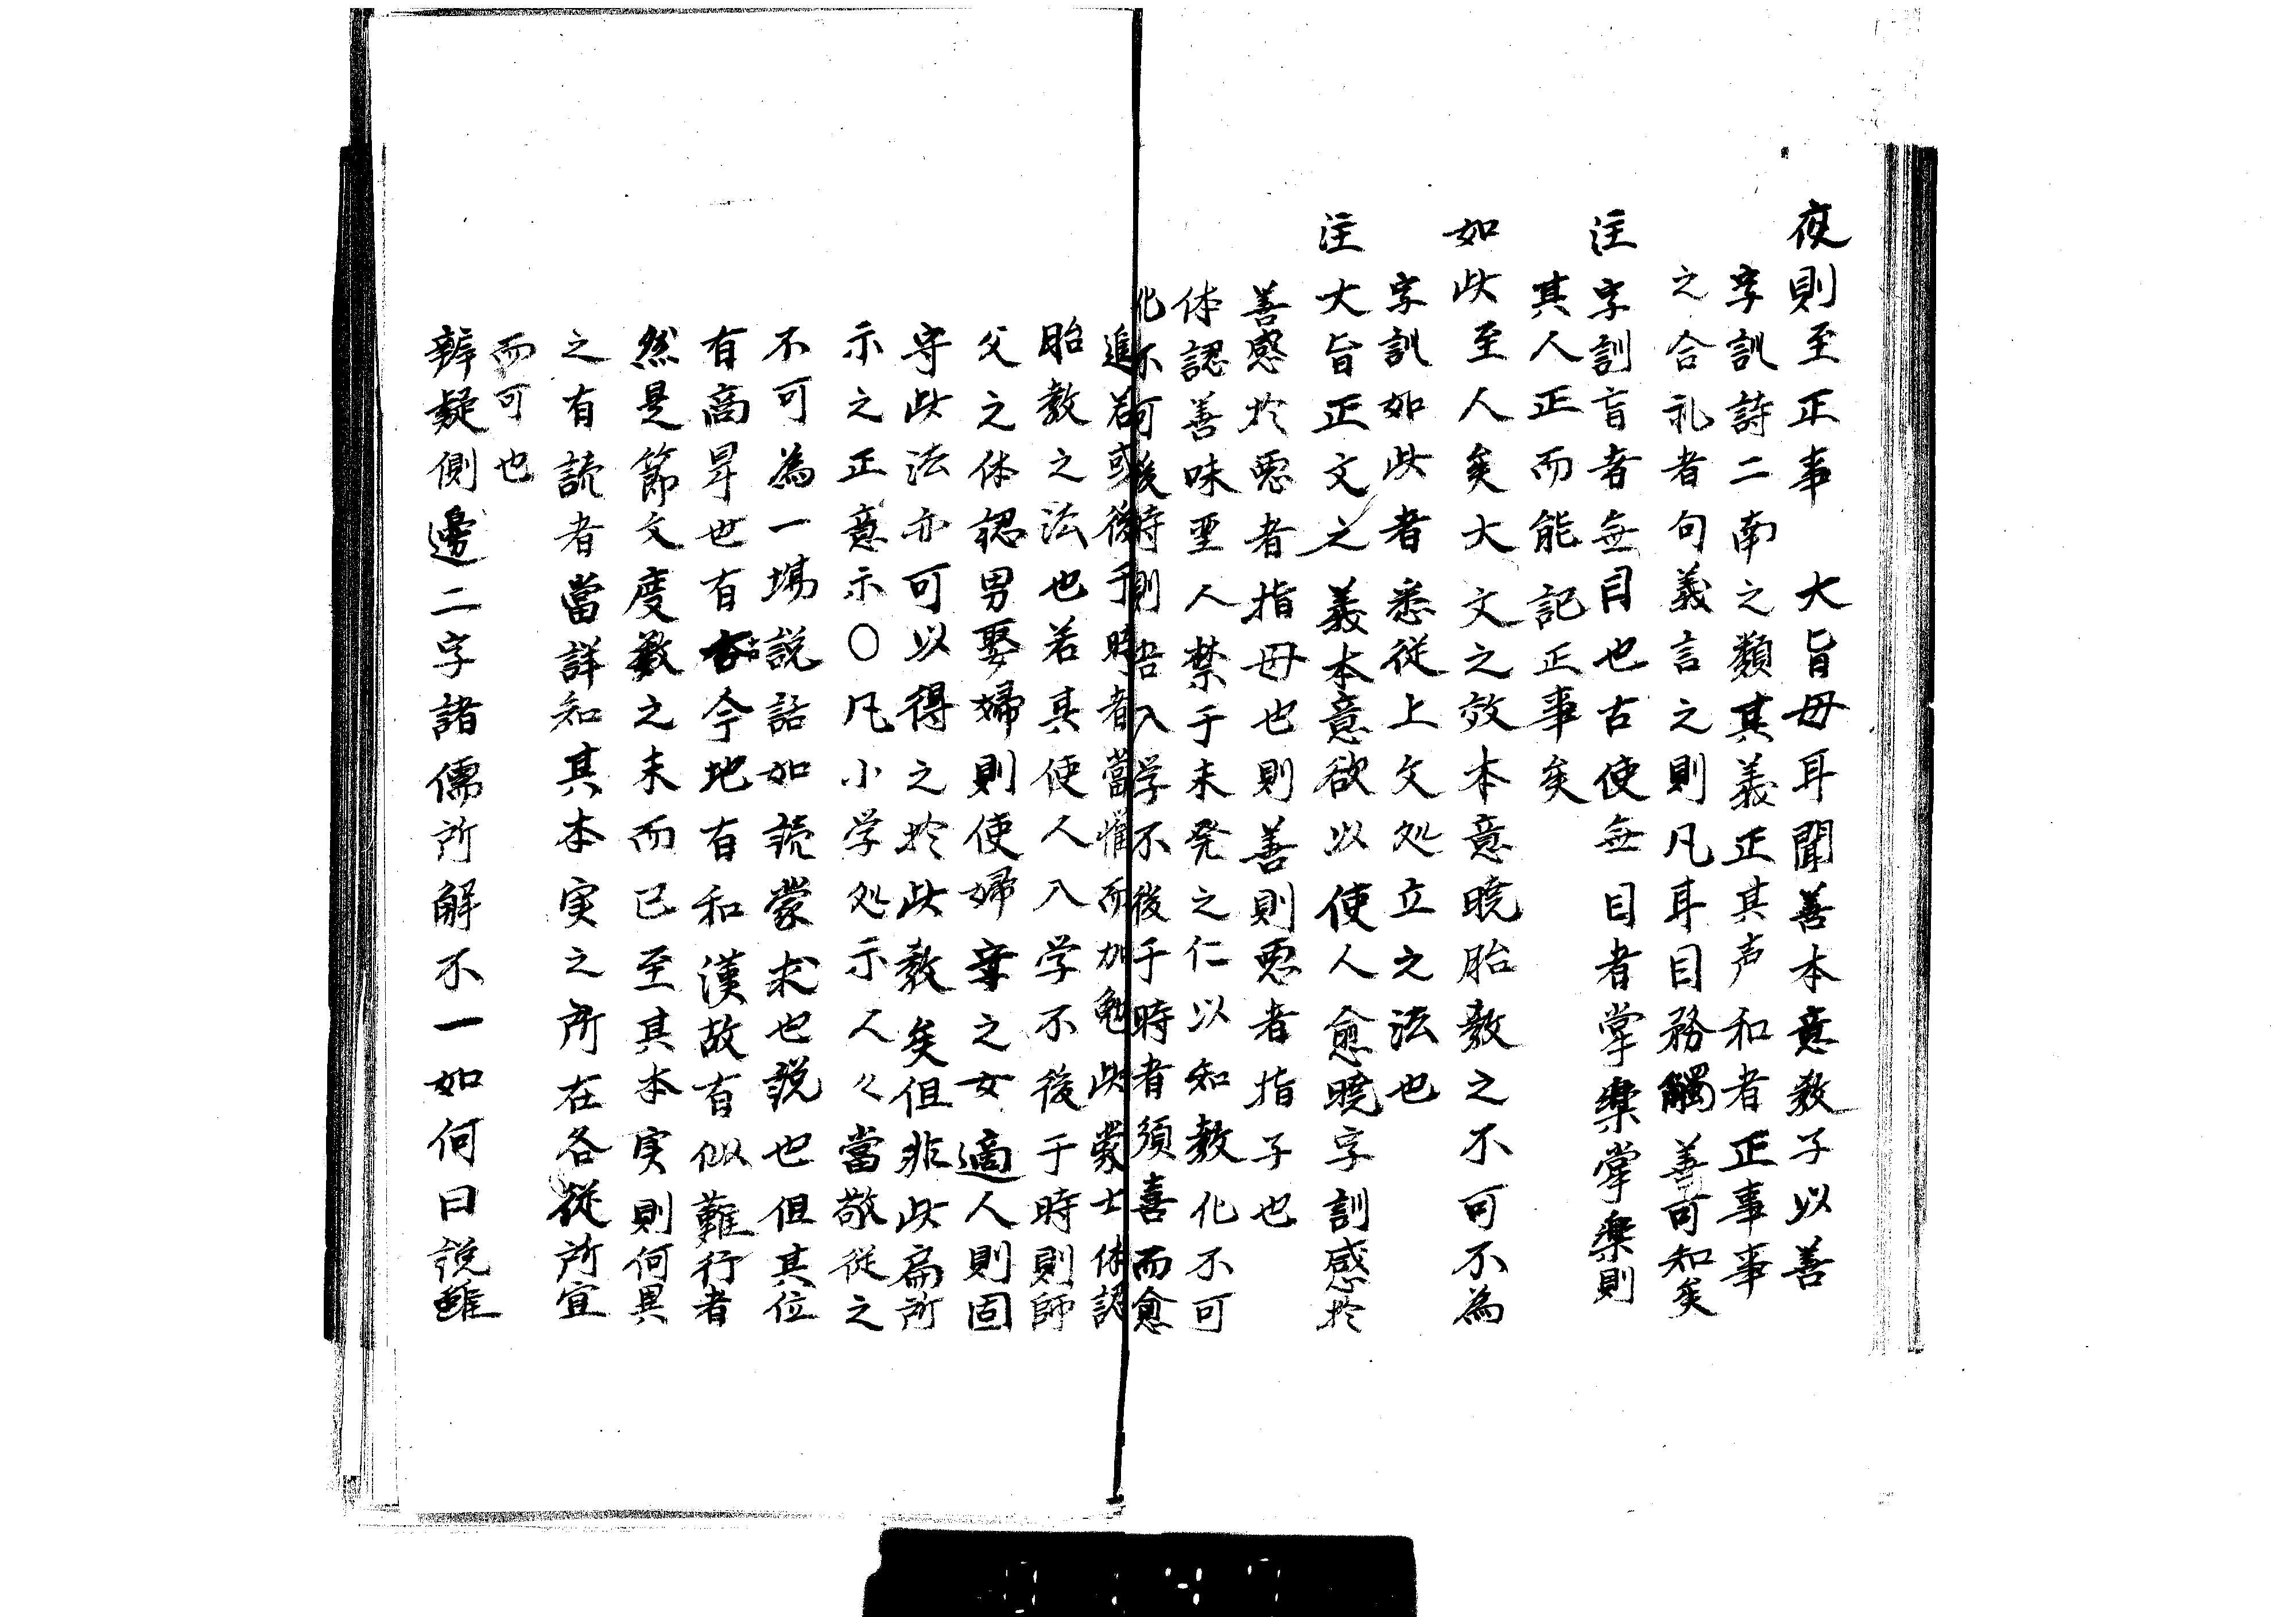 夜則至正事　大旨母耳聞善本意教子以善
字訓詩二南之類其義正其声和者正事事
之合礼者句義言之則凡耳目務觸善可知矣
注字訓盲者無目也古使無目者掌楽掌楽則
其人正而能記正事矣
如此至人矣大文之效本意曉胎教之不可不為
字訓如此者悉従上文処立之法也
注大旨正文之義本意欲以使人愈曉字訓感於
善感於悪者指母也則善則悪者指子也
体認善味聖人禁于未発之仁以知教化不可
化不可後時則吾入学不後于時者須喜而愈
進若或後于時者當懼而加勉此蒙士体認
胎教之法也若其使人入学不後于時則師
父之体認男娶婦則使婦辛之女適人則固
守此法亦可以得之於此教矣但非此扁所
示之正意示〇凡小学処示人々當敬従之
不可為一場説話如読蒙求也説也但其位
有高卑也有古今地有和漢故有似難行者
然是節文度数之末而已至其本実則何異
之有読者當詳知其本実之所在各従所宜
而可也
辨疑側邊二字諸儒所解不一如何曰説雖